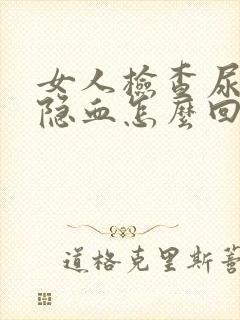 女人檢查尿
隐血怎麼回
道格克里斯蒂